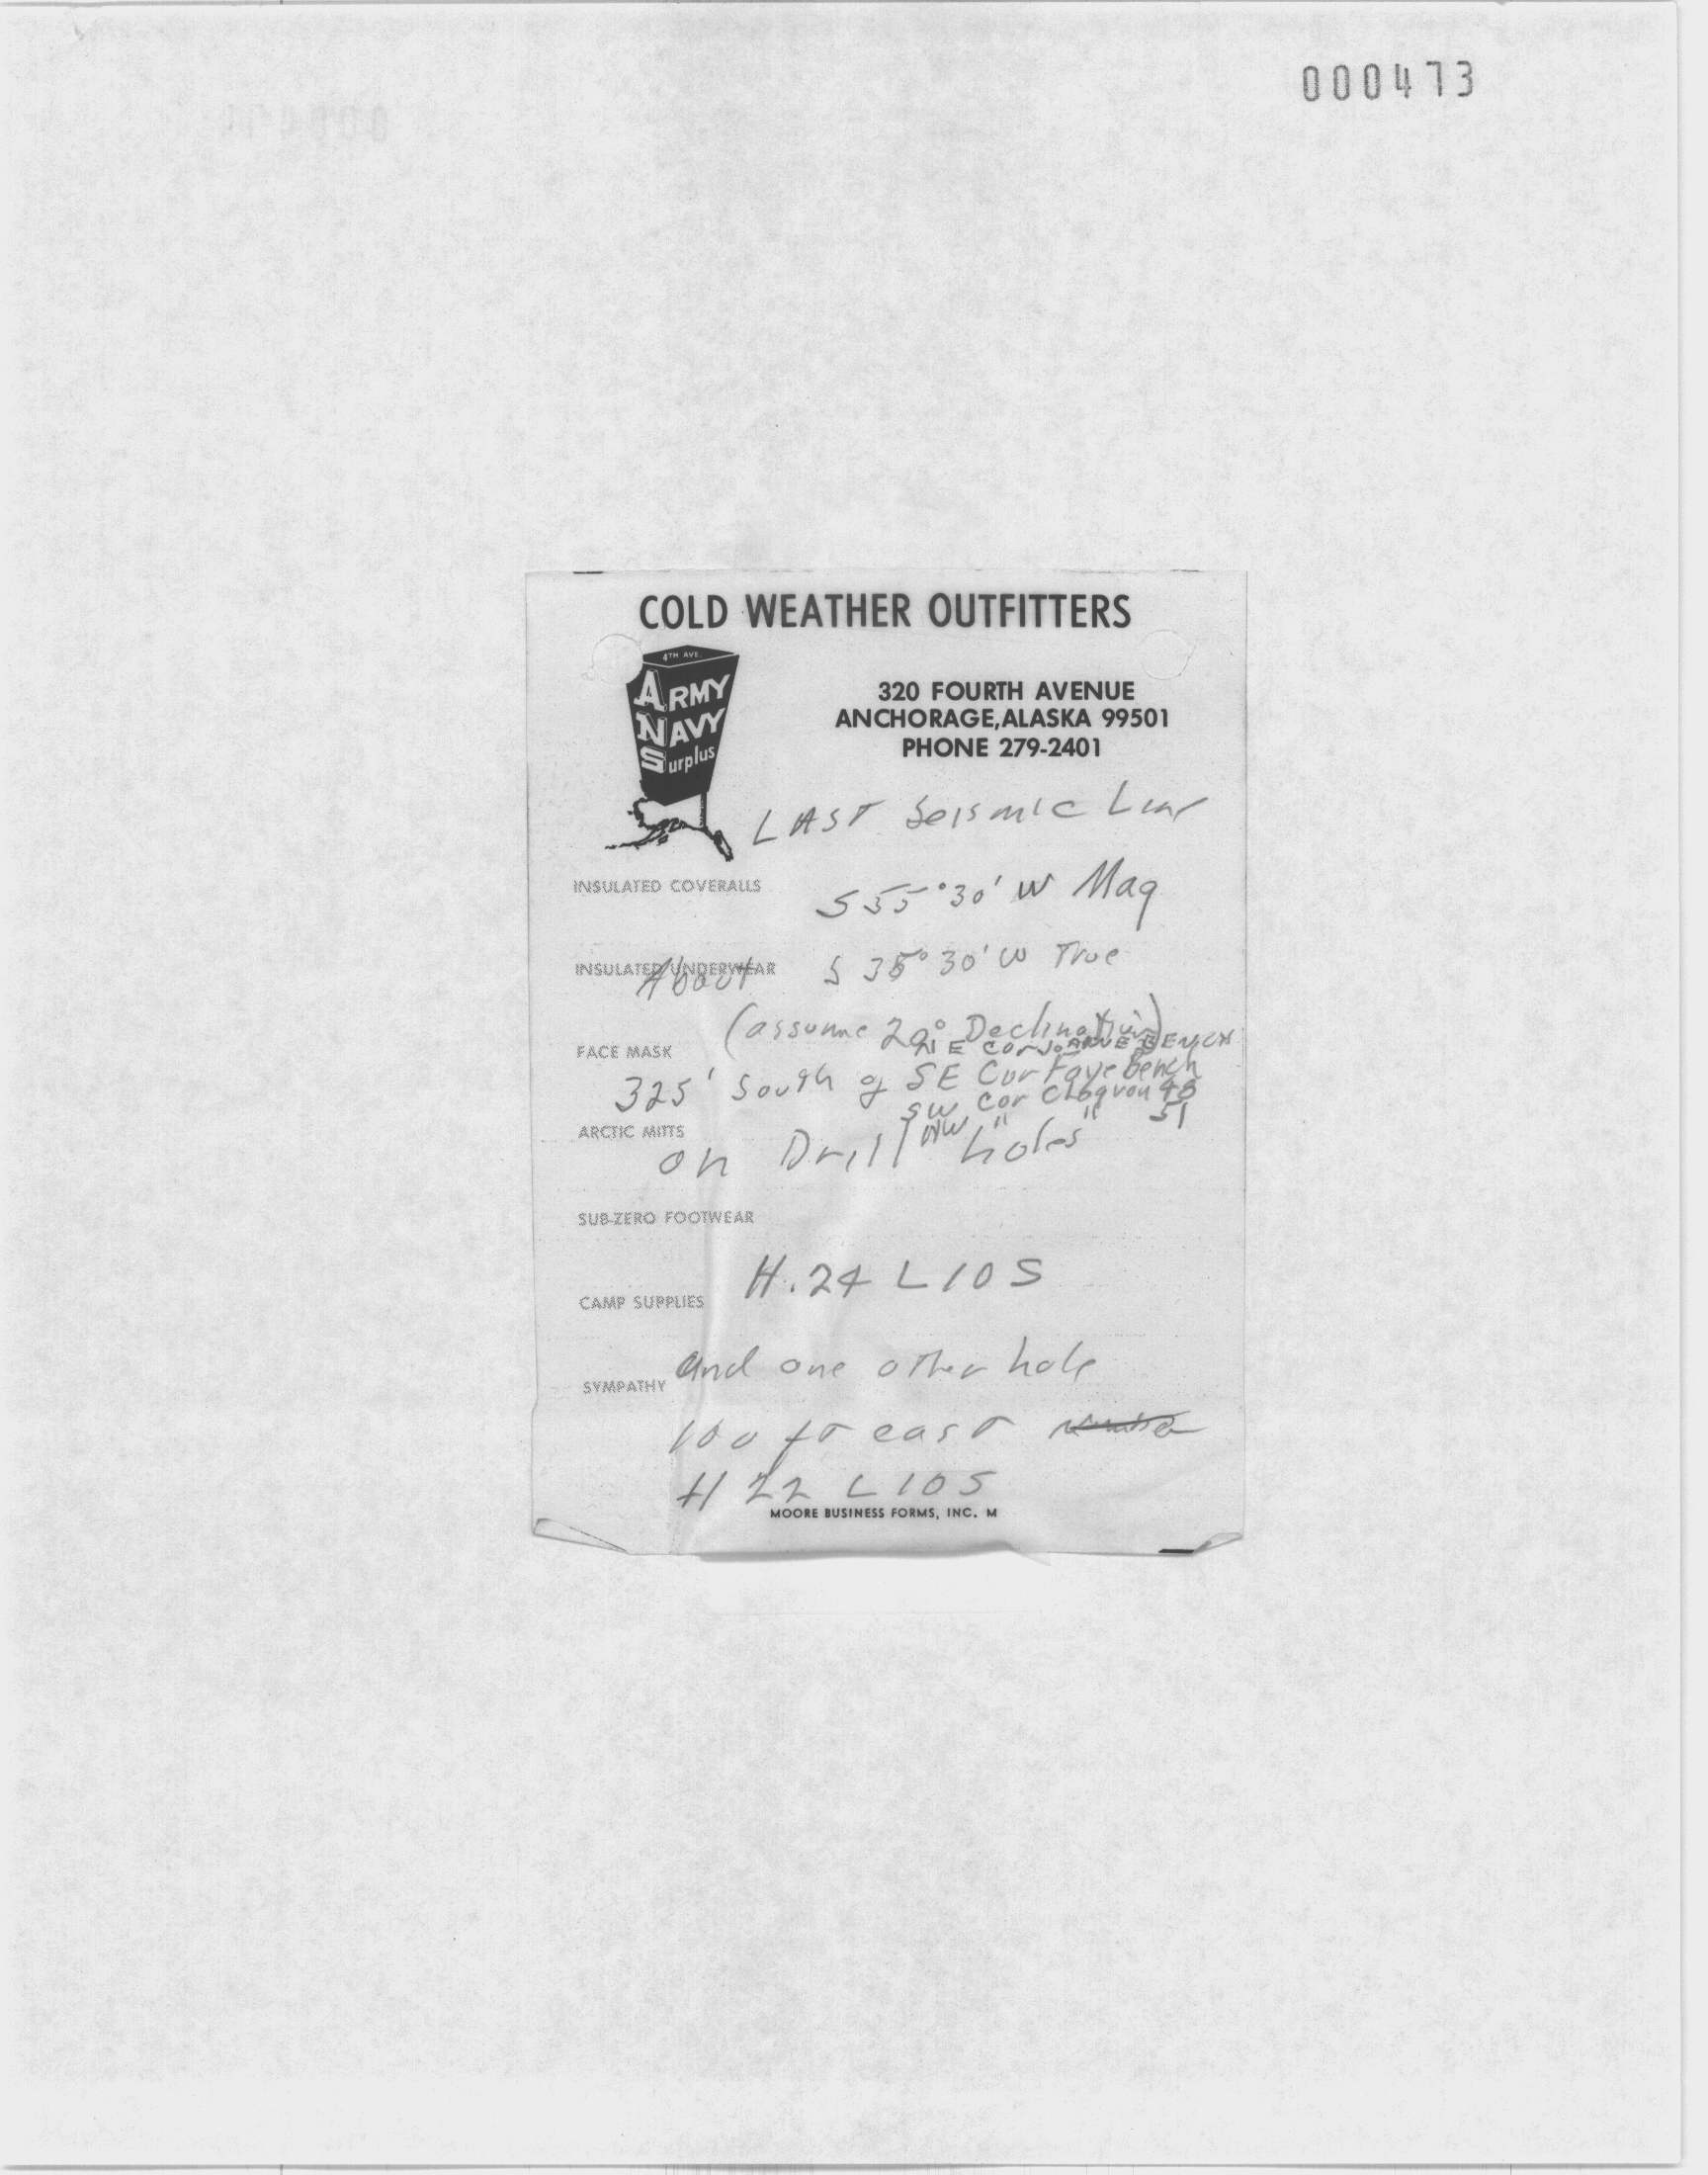 000473
COLD WEATHER OUTFITTERS
4TH AVE.
ARMY
NAVY
Surplus
320 FOURTH AVENUE
ANCHORAGE, ALASKA 99501
PHONE 279-2401
LAST Seismic Line
INSULATED COVERALLS
S 55°30' W Mag
INSULATED UNDERWEAR
About S 35°30' W True
(assume 20° Declination)
NE Cor BENCH
FACE MASK
325' South of SE Cor Faye Bench
SW Cor 48
NW " " 51
ARCTIC MITTS
on Drill holes
SUB-ZERO FOOTWEAR
H.24 L10S
CAMP SUPPLIES
and one other hole
SYMPATHY
100 ft east
H 22 L10S
MOORE BUSINESS FORMS, INC. M